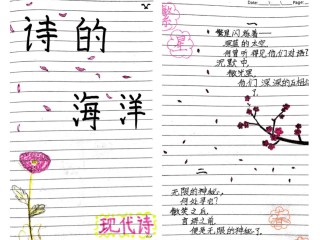 诗的
海洋
现代诗
繁
星
一
繁星闪烁着——
深蓝的太空,
何曾听得见他们对语?
沉默中,
微光里,
他们深深的互相
了.
二
无限的神秘,
何处寻它?
微笑之后,
言语之前,
便是无限的神秘了.